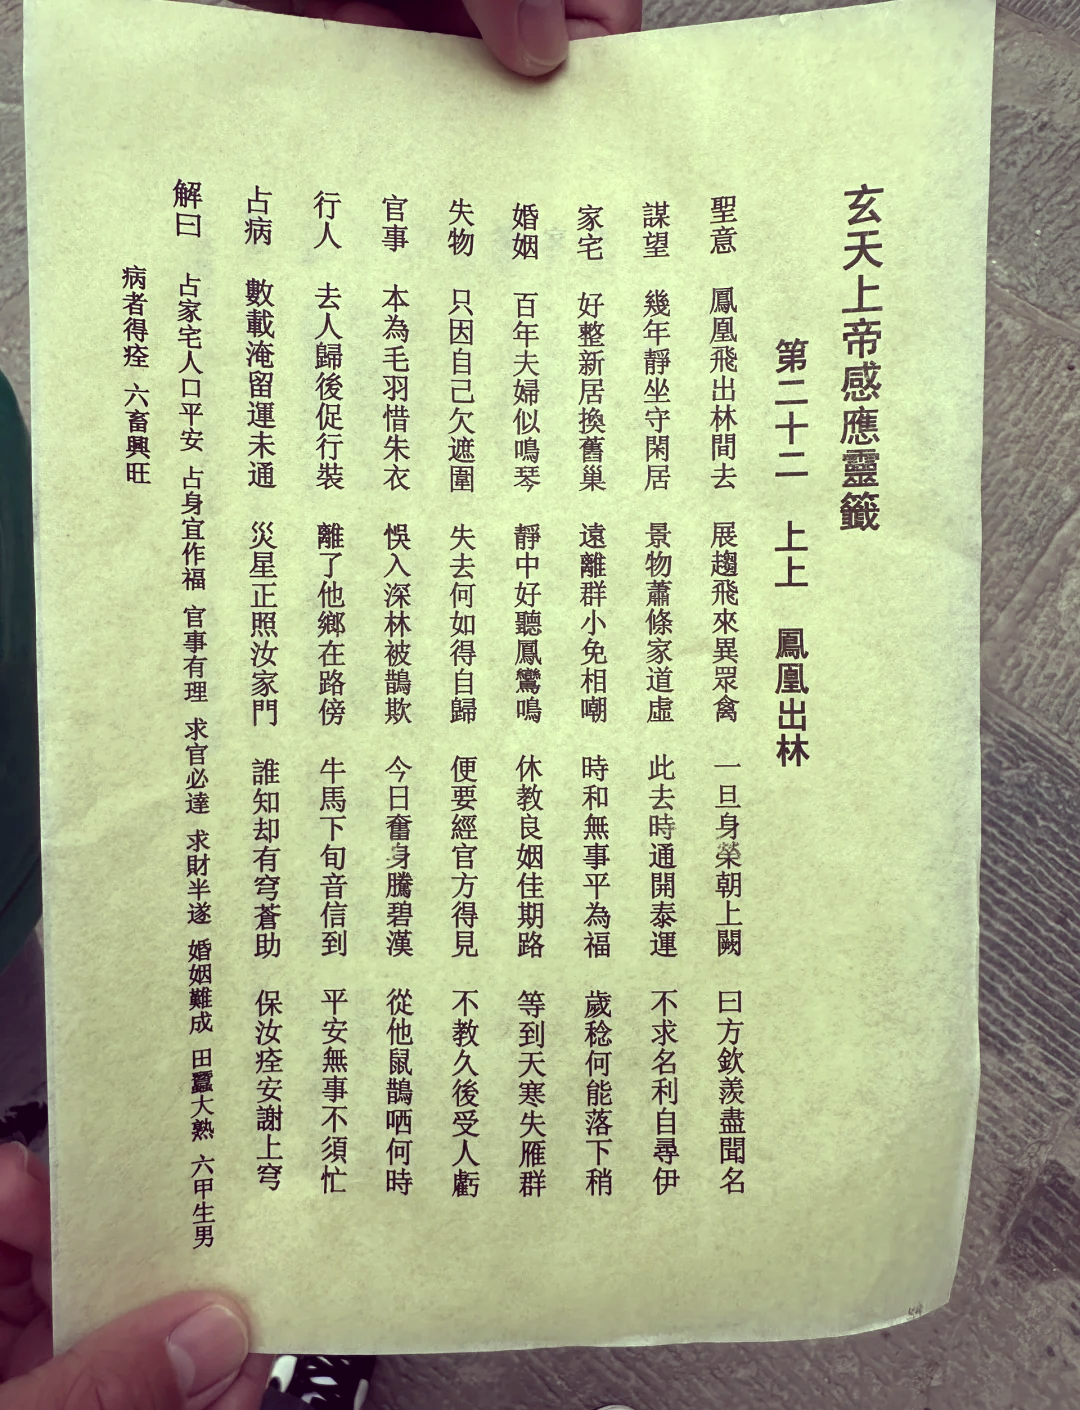 玄天上帝感應靈籤
第二十二 上上 鳳凰出林
聖意 鳳凰飛出林間去 展趨飛來異眾禽 一旦身榮朝上闕 曰方欽羨盡聞名
謀望 幾年靜坐守閑居 景物蕭條家道虛 此去時通開泰運 不求名利自尋伊
家宅 好整新居換舊巢 遠離群小免相嘲 時和無事平為福 歲稔何能落下稍
婚姻 百年夫婦似鳴琴 靜中好聽鳳鸞鳴 休教良姻佳期路 等到天寒失雁群
失物 只因自己欠遮圍 失去何如得自歸 便要經官方得見 不教久後受人虧
官事 本為毛羽惜朱衣 悞入深林被鵲欺 今日奮身騰碧漢 從他鼠鵲哂何時
行人 去人歸後促行裝 離了他鄉在路傍 牛馬下旬音信到 平安無事不須忙
占病 數載淹留運未通 災星正照汝家門 誰知却有穹蒼助 保汝痊安謝上穹
解曰 占家宅人口平安 占身宜作福 官事有理 求官必達 求財半遂 婚姻難成 田蠶大熟 六甲生男
病者得痊 六畜興旺